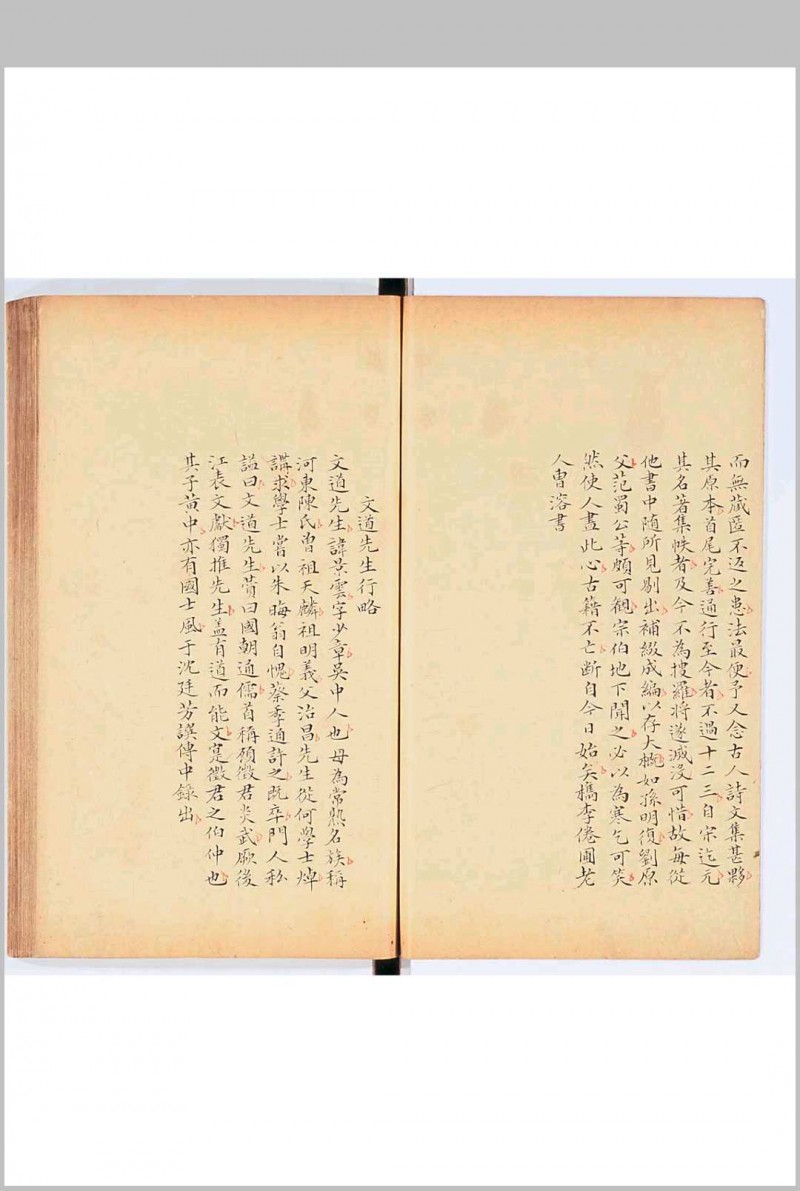 而無藏匿不返之患法最便予又念古人詩文集甚夥
其原本首尾完善通行至今者不過十二三自宋迄元
其名著集帙者及今不為搜羅將遂滅沒可惜故每從
他書中随所見剔出補綴成編以存大概如孫明復劉原
父范蜀公等頗可觀宗伯地下聞之必以為寒乞可笑
然使人盡此心古籍不亡斷自今日始矣檇李倦圃老
人曹溶書
文道先生行略
文道先生諱景雲字少章吳中人也母為常熟名族稱
河東陳氏曾祖天麟祖明義父治昌先生從何學士焯
講求學士嘗以朱晦翁自愧蔡季通許之既卒門人私
謚曰文道先生贊曰國朝通儒首稱顧徵君炎武厥後
江表文獻獨推先生盖有道而能文寔徵君之伯仲也
其子黃中亦有國士風于沈廷芳譔傳中錄出